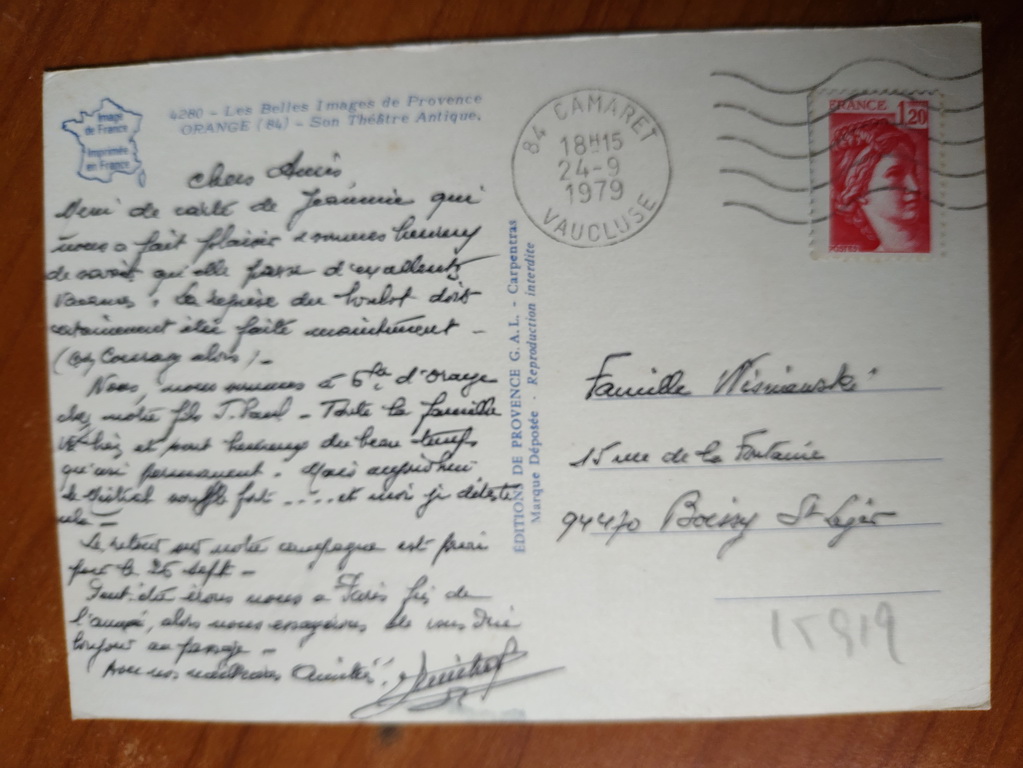 Image
de France
Imprimée
en France
4280 - Les Belles Images de Provence
ORANGE (84) - Son Théâtre Antique.
84 CAMARET
18H15
24-9
1979
VAUCLUSE
FRANCE 1,20
POSTES
chers Amis
Merci de carte de Jeannie qui
nous a fait plaisir & sommes heureux
de savoir qu'elle passe d'excellentes
vacances. La reprise du boulot doit
certainement être faite maintenant -
Courage alors) -
Nous, nous sommes à d'Orange
chez notre fils J. Paul - Toute la famille
va bien et sont heureux du beau temps
permanent. Mais aujourd'hui
le Mistral souffle fort ..... et moi je déteste
cela -
Le retour sur notre campagne est prévu
pour le 25 sept -
Peut-être irons nous à Paris fin de
l'année, alors nous essayerons de vous dire
bonjour au passage -
Avec nos meilleures Amitiés.
ÉDITIONS DE PROVENCE G.A.L. - Carpentras
Marque Déposée - Reproduction interdite
Famille Wisniewski
15 rue de la Fontaine
94470 Boissy St Léger
15919